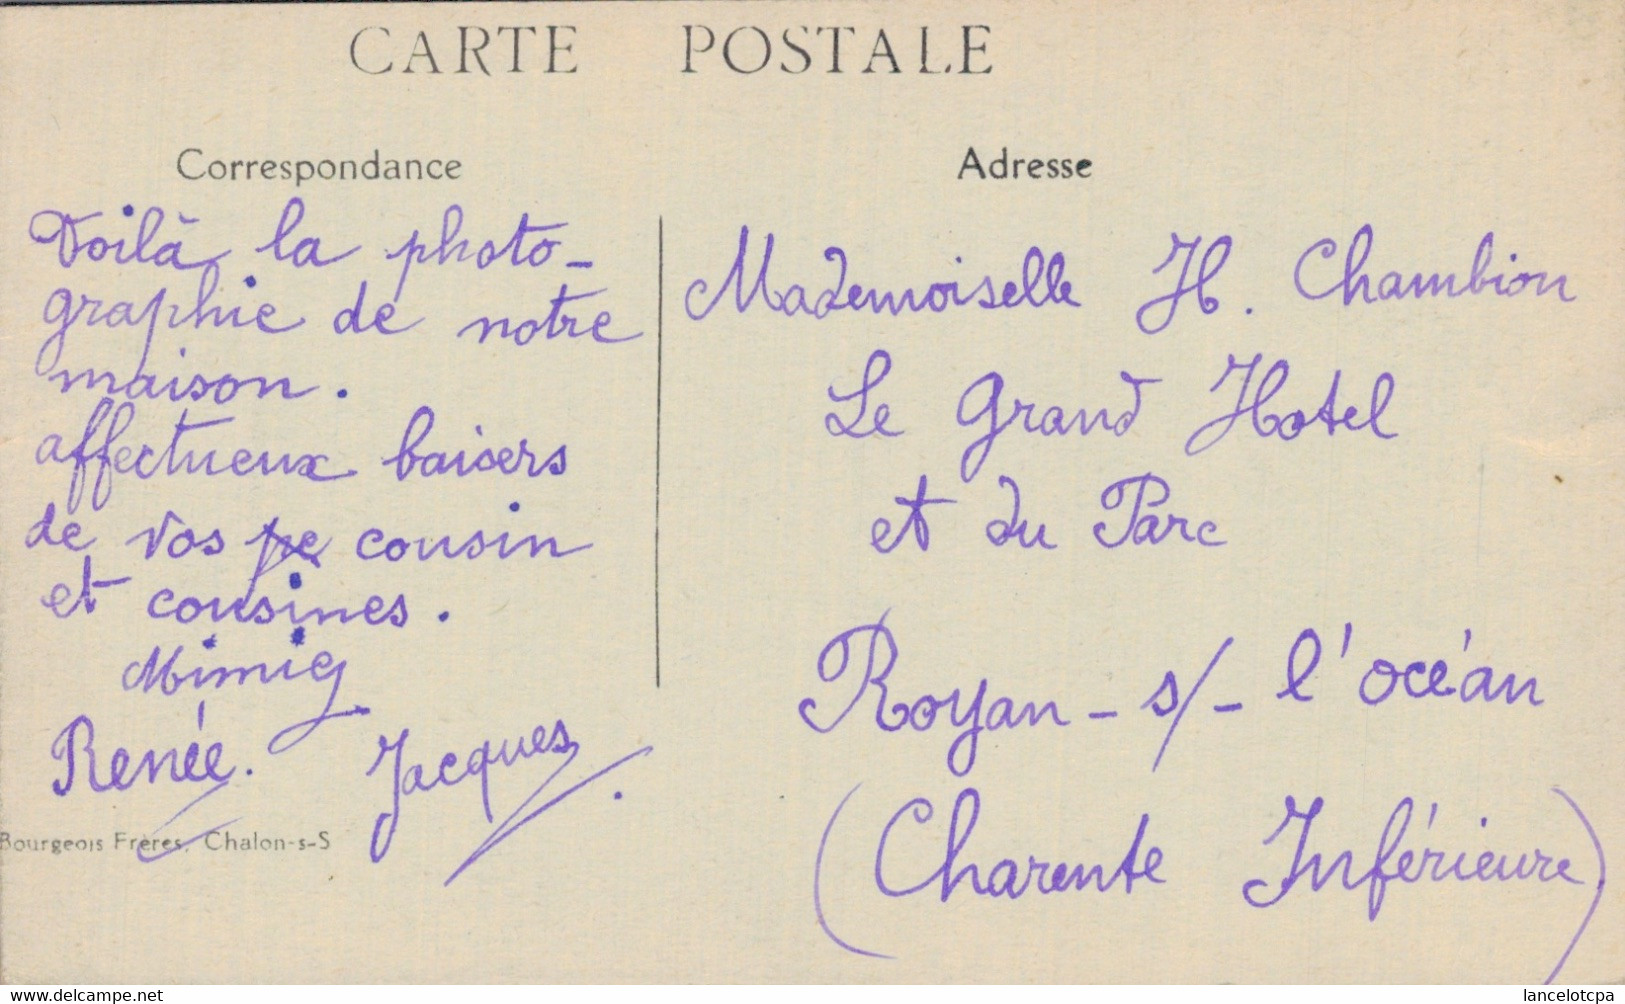 CARTE POSTALE
Correspondance
Voilà la photo-
graphie de notre
maison.
affectueux baisers
de vos pe cousin
et cousines.
Mimig
Renée. Jacques.
Bourgeois Frères, Chalon-s-S
Adresse
Mademoiselle H. Chambion
Le Grand Hotel
et du Parc
Royan - s/- l'océan
(Charente Inférieure)
www.delcampe.net
lancelotcpa